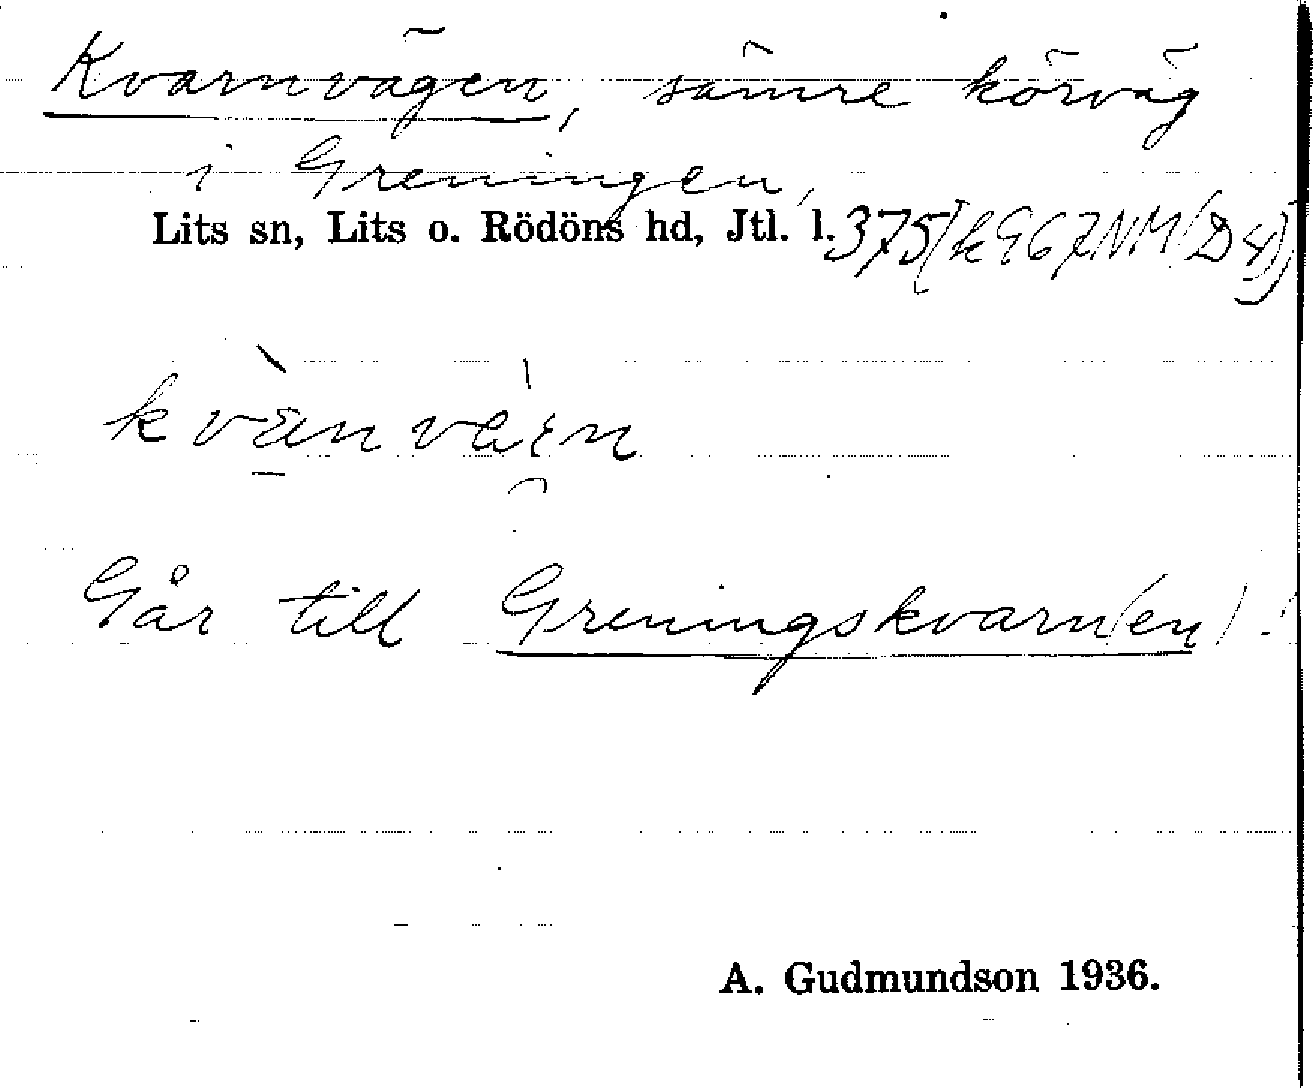 Kvarnvägen, sämre körväg
i Greningen,
Lits sn, Lits o. Rödöns hd, Jtl. l. 375
Går till Greningskvarn(en).
A. Gudmundson 1936.